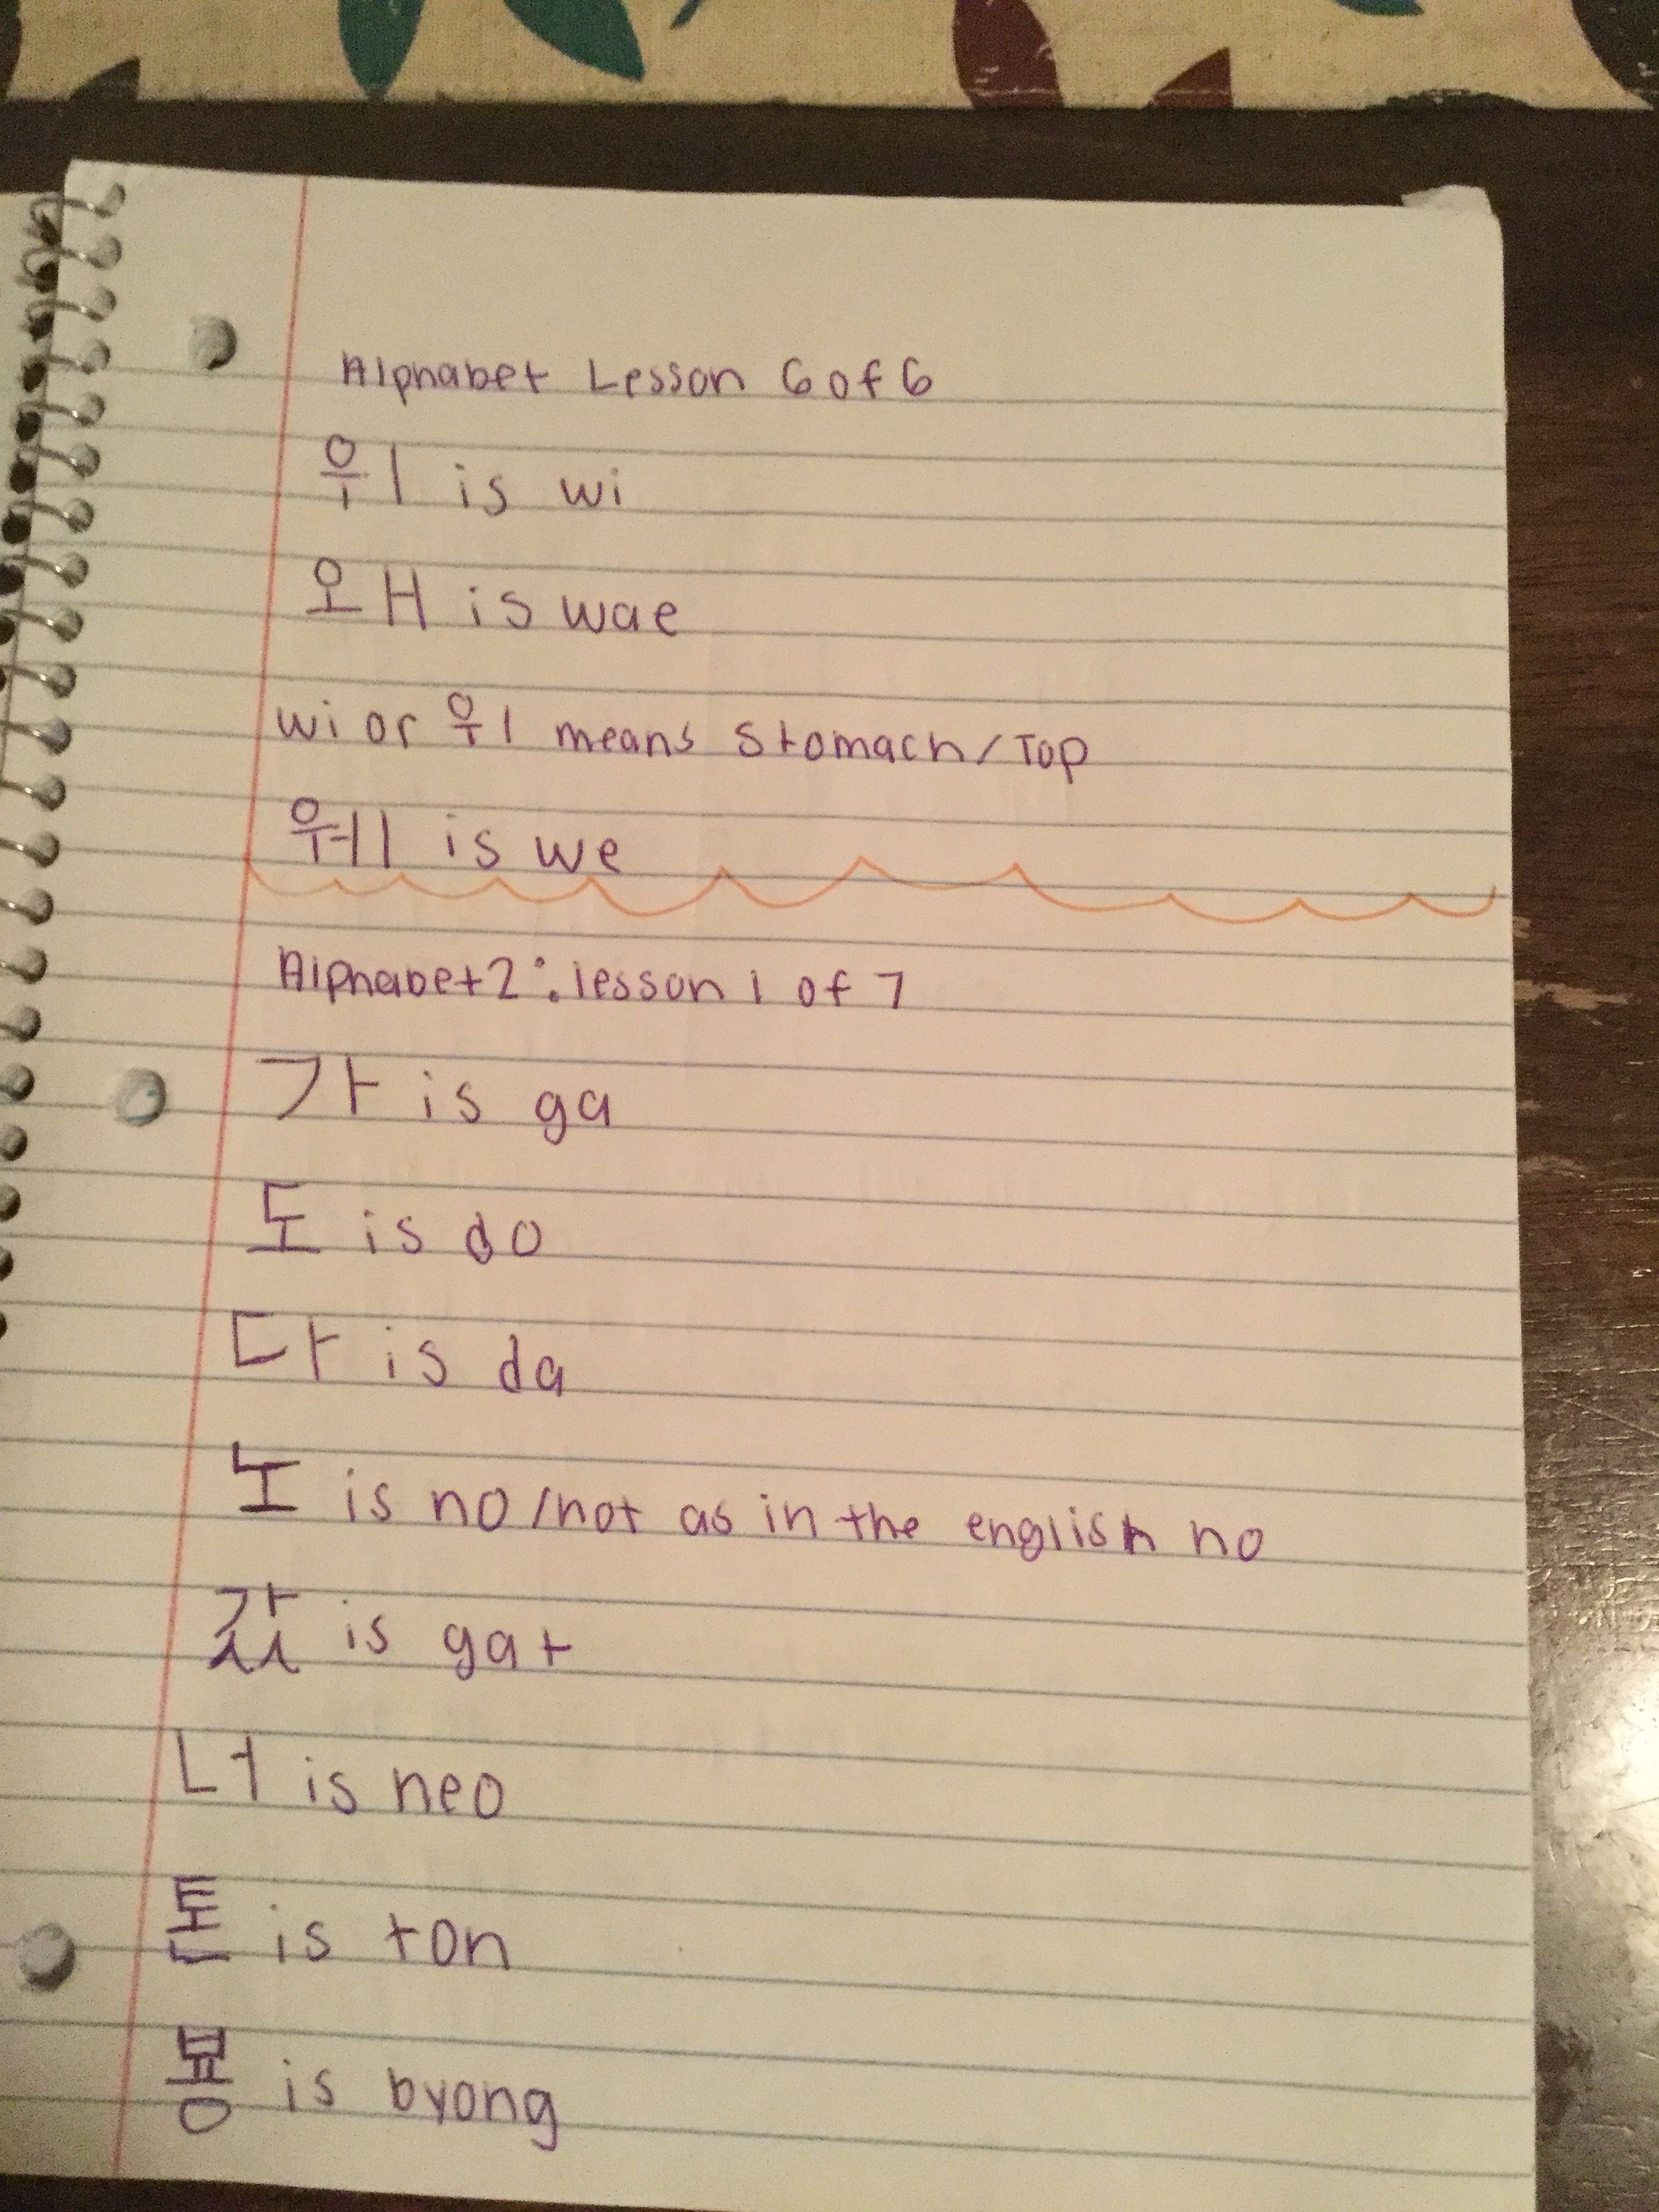 Alphabet Lesson 6 of 6
위 is wi
왜 is wae
wi or 위 means stomach/Top
웨 is we
Alphabet 2: lesson 1 of 7
가 is ga
도 is do
다 is da
노 is no/not as in the english no
갔 is gat
너 is neo
톤 is ton
뵹 is byong